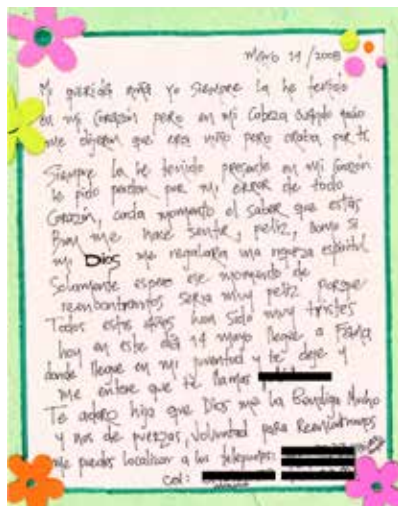 Mayo 14 / 2008
Mi querida niña yo siempre la he tenido
en mi corazón pero en mi cabeza cuando
me dijeron que era niño pero oraba por ti.
Siempre la he tenido presente en mi corazón
le pido perdón por mi error de todo
corazón, cada momento el saber que estás
Bien me hace sentir, feliz, como si
mi Dios me regalaría una riqueza espiritul
Solamente espero ese momento de
reencontrarnos sería muy feliz porque
Todos estos años han sido muy tristes
hoy en este día 14 mayo llegué a
donde llegue en mi juventud y te deje y
me entere que te llamas
Te adoro hija que Dios me la Bendiga Mucho
y nos de fuerzas, voluntad para Reencontrarnos
me puedes localizar a los telefonos:
Cel: